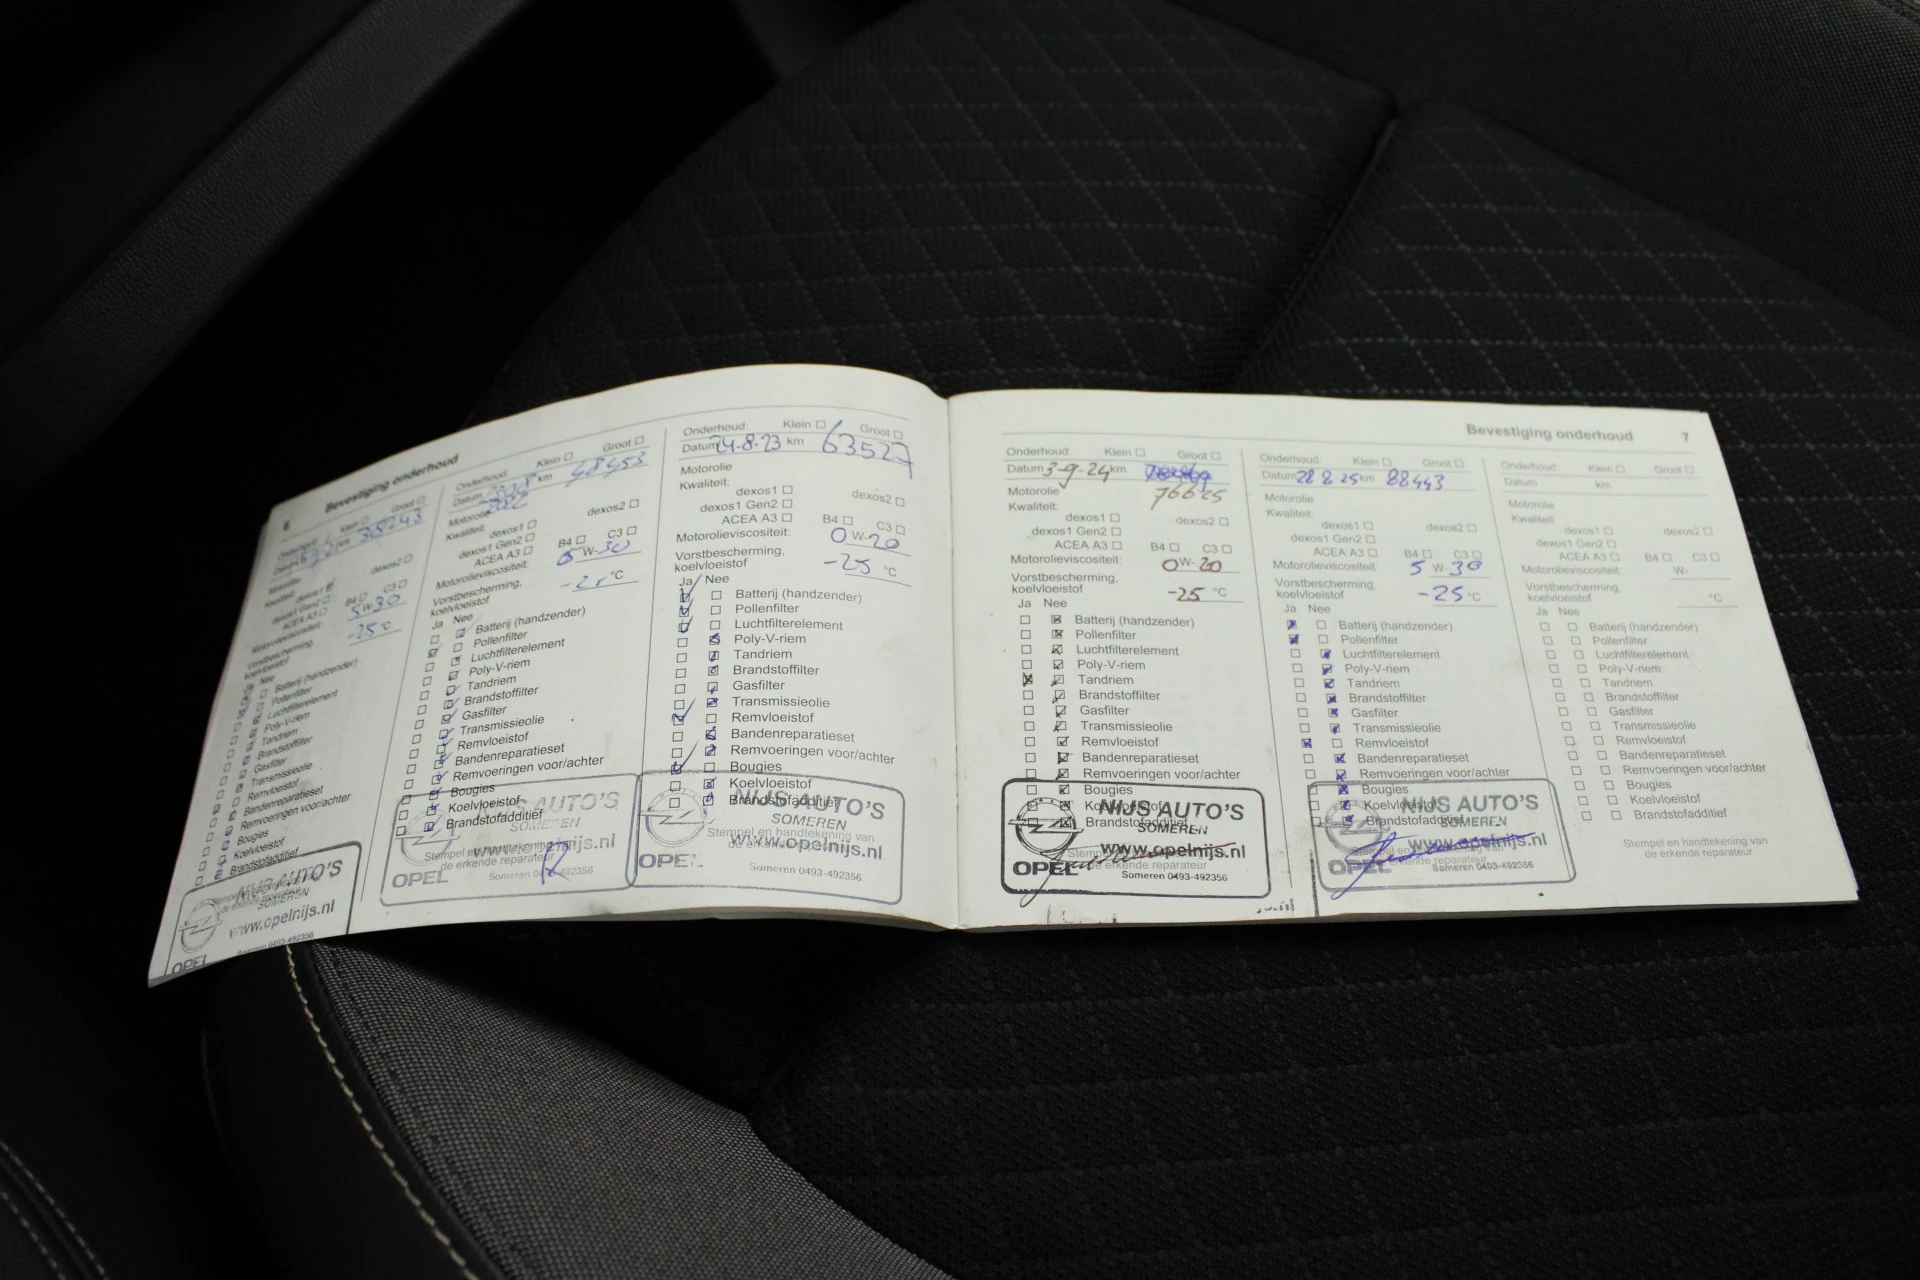 6 Bevestiging onderhoud
Onderhoud: Klein Groot
km 35243
Motorolie
Kwaliteit:
dexos1 dexos2
dexos1 Gen2
ACEA A3 B4 C3
Motorolieviscositeit: 5 W-30
Vorstbescherming,
koelvloeistof -25 °C
Nee
Batterij (handzender)
Pollenfilter
Luchtfilterelement
Poly-V-riem
Tandriem
Brandstoffilter
Gasfilter
Transmissieolie
Remvloeistof
Bandenreparatieset
Remvoeringen voor/achter
Bougies
Koelvloeistof
Brandstofadditief
NIJS AUTO'S
SOMEREN
www.opelnijs.nl
OPEL
Someren 0493-492356
Onderhoud: Klein Groot
Datum km 48453
Motorolie
Kwaliteit:
dexos1 dexos2
dexos1 Gen2
ACEA A3 B4 C3
Motorolieviscositeit: W-30
Vorstbescherming,
koelvloeistof °C
Ja Nee
Batterij (handzender)
Pollenfilter
Luchtfilterelement
Poly-V-riem
Tandriem
Brandstoffilter
Gasfilter
Transmissieolie
Remvloeistof
Bandenreparatieset
Remvoeringen voor/achter
Bougies
Koelvloeistof
Brandstofadditief
AUTO'S
SOMEREN
www.opelnijs.nl
Stempel en handtekening van
de erkende reparateur
OPEL
Someren 0493-492356
Onderhoud: Klein Groot
Datum 24-8-23 km 63527
Motorolie
Kwaliteit:
dexos1 dexos2
dexos1 Gen2
ACEA A3 B4 C3
Motorolieviscositeit: 0 W-20
Vorstbescherming,
koelvloeistof -25 °C
Ja Nee
Batterij (handzender)
Pollenfilter
Luchtfilterelement
Poly-V-riem
Tandriem
Brandstoffilter
Gasfilter
Transmissieolie
Remvloeistof
Bandenreparatieset
Remvoeringen voor/achter
Bougies
Koelvloeistof
Brandstofadditief
NIJS AUTO'S
SOMEREN
Stempel en handtekening van
de erkende reparateur
www.opelnijs.nl
OPEL
Someren 0493-492356
Bevestiging onderhoud 7
Onderhoud: Klein Groot
Datum 3-9-24 km
76625
Motorolie
Kwaliteit:
dexos1 dexos2
dexos1 Gen2
ACEA A3 B4 C3
Motorolieviscositeit: 0 W-20
Vorstbescherming,
koelvloeistof -25 °C
Ja Nee
Batterij (handzender)
Pollenfilter
Luchtfilterelement
Poly-V-riem
Tandriem
Brandstoffilter
Gasfilter
Transmissieolie
Remvloeistof
Bandenreparatieset
Remvoeringen voor/achter
Bougies
Koelvloeistof
Brandstofadditief
NIJS AUTO'S
SOMEREN
www.opelnijs.nl
OPEL
Someren 0493-492356
Onderhoud: Klein Groot
Datum 28 8 25 km 88443
Motorolie
Kwaliteit:
dexos1 dexos2
dexos1 Gen2
ACEA A3 B4 C3
Motorolieviscositeit: 5 W-30
Vorstbescherming,
koelvloeistof -25 °C
Ja Nee
Batterij (handzender)
Pollenfilter
Luchtfilterelement
Poly-V-riem
Tandriem
Brandstoffilter
Gasfilter
Transmissieolie
Remvloeistof
Bandenreparatieset
Remvoeringen voor/achter
Bougies
Koelvloeistof
Brandstofadditief
NIJS AUTO'S
SOMEREN
www.opelnijs.nl
de erkende reparateur
OPEL
Someren 0493-492356
Onderhoud: Klein Groot
Datum km
Motorolie
Kwaliteit:
dexos1 dexos2
dexos1 Gen2
ACEA A3 B4 C3
Motorolieviscositeit: W-
Vorstbescherming,
koelvloeistof °C
Ja Nee
Batterij (handzender)
Pollenfilter
Luchtfilterelement
Poly-V-riem
Tandriem
Brandstoffilter
Gasfilter
Transmissieolie
Remvloeistof
Bandenreparatieset
Remvoeringen voor/achter
Bougies
Koelvloeistof
Brandstofadditief
Stempel en handtekening van
de erkende reparateur